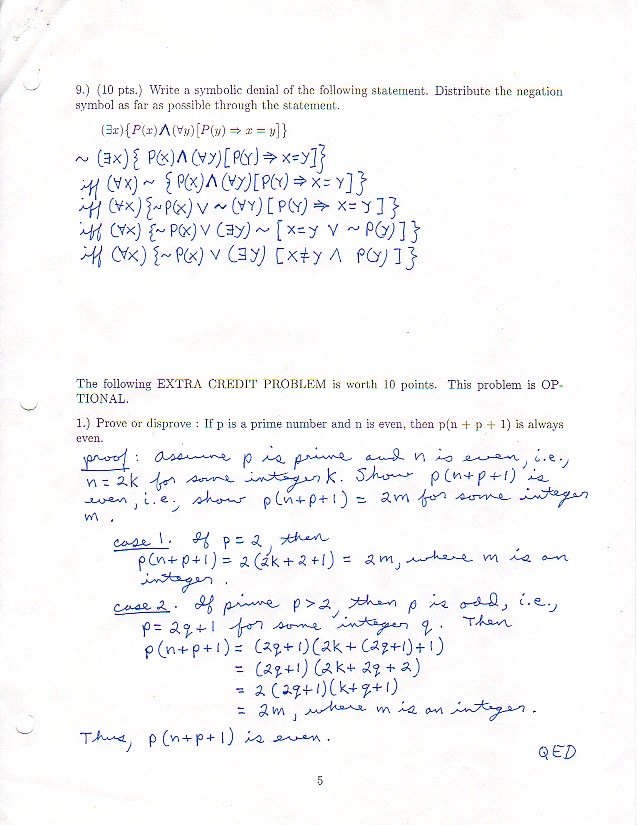 9.) (10 pts.) Write a symbolic denial of the following statement. Distribute the negation
symbol as far as possible through the statement.
(∃x){P(x)∧(∀y)[P(y) ⇒ x = y]}
~ (∃x){ P(x)∧(∀y)[P(y)⇒ x=y]}
iff (∀x) ~ { P(x)∧(∀y)[P(y)⇒x=y]}
iff (∀x){~P(x) ∨ ~(∀y)[P(y) ⇒ x=y]}
iff (∀x) {~P(x) ∨ (∃y) ~ [x=y ∨ ~P(y)]}
iff (∀x) {~P(x) ∨ (∃y) [x≠y ∧ P(y)]}
The following EXTRA CREDIT PROBLEM is worth 10 points. This problem is OP-
TIONAL.
1.) Prove or disprove : If p is a prime number and n is even, then p(n + p + 1) is always
even.
proof : Assume p is prime and n is even, i.e.,
n = 2k for some integer k. Show p(n+p+1) is
even, i.e., show p(n+p+1) = 2m for some integer
m .
case 1. If p = 2, then
p(n+p+1) = 2(2k+2+1) = 2m, where m is an
integer.
case 2. If prime p>2, then p is odd, i.e.,
p= 2q+1 for some integer q. Then
p(n+p+1) = (2q+1)(2k+(2q+1)+1)
= (2q+1)(2k+2q+2)
= 2(2q+1)(k+q+1)
= 2m, where m is an integer.
Thus, p(n+p+1) is even.
QED
5